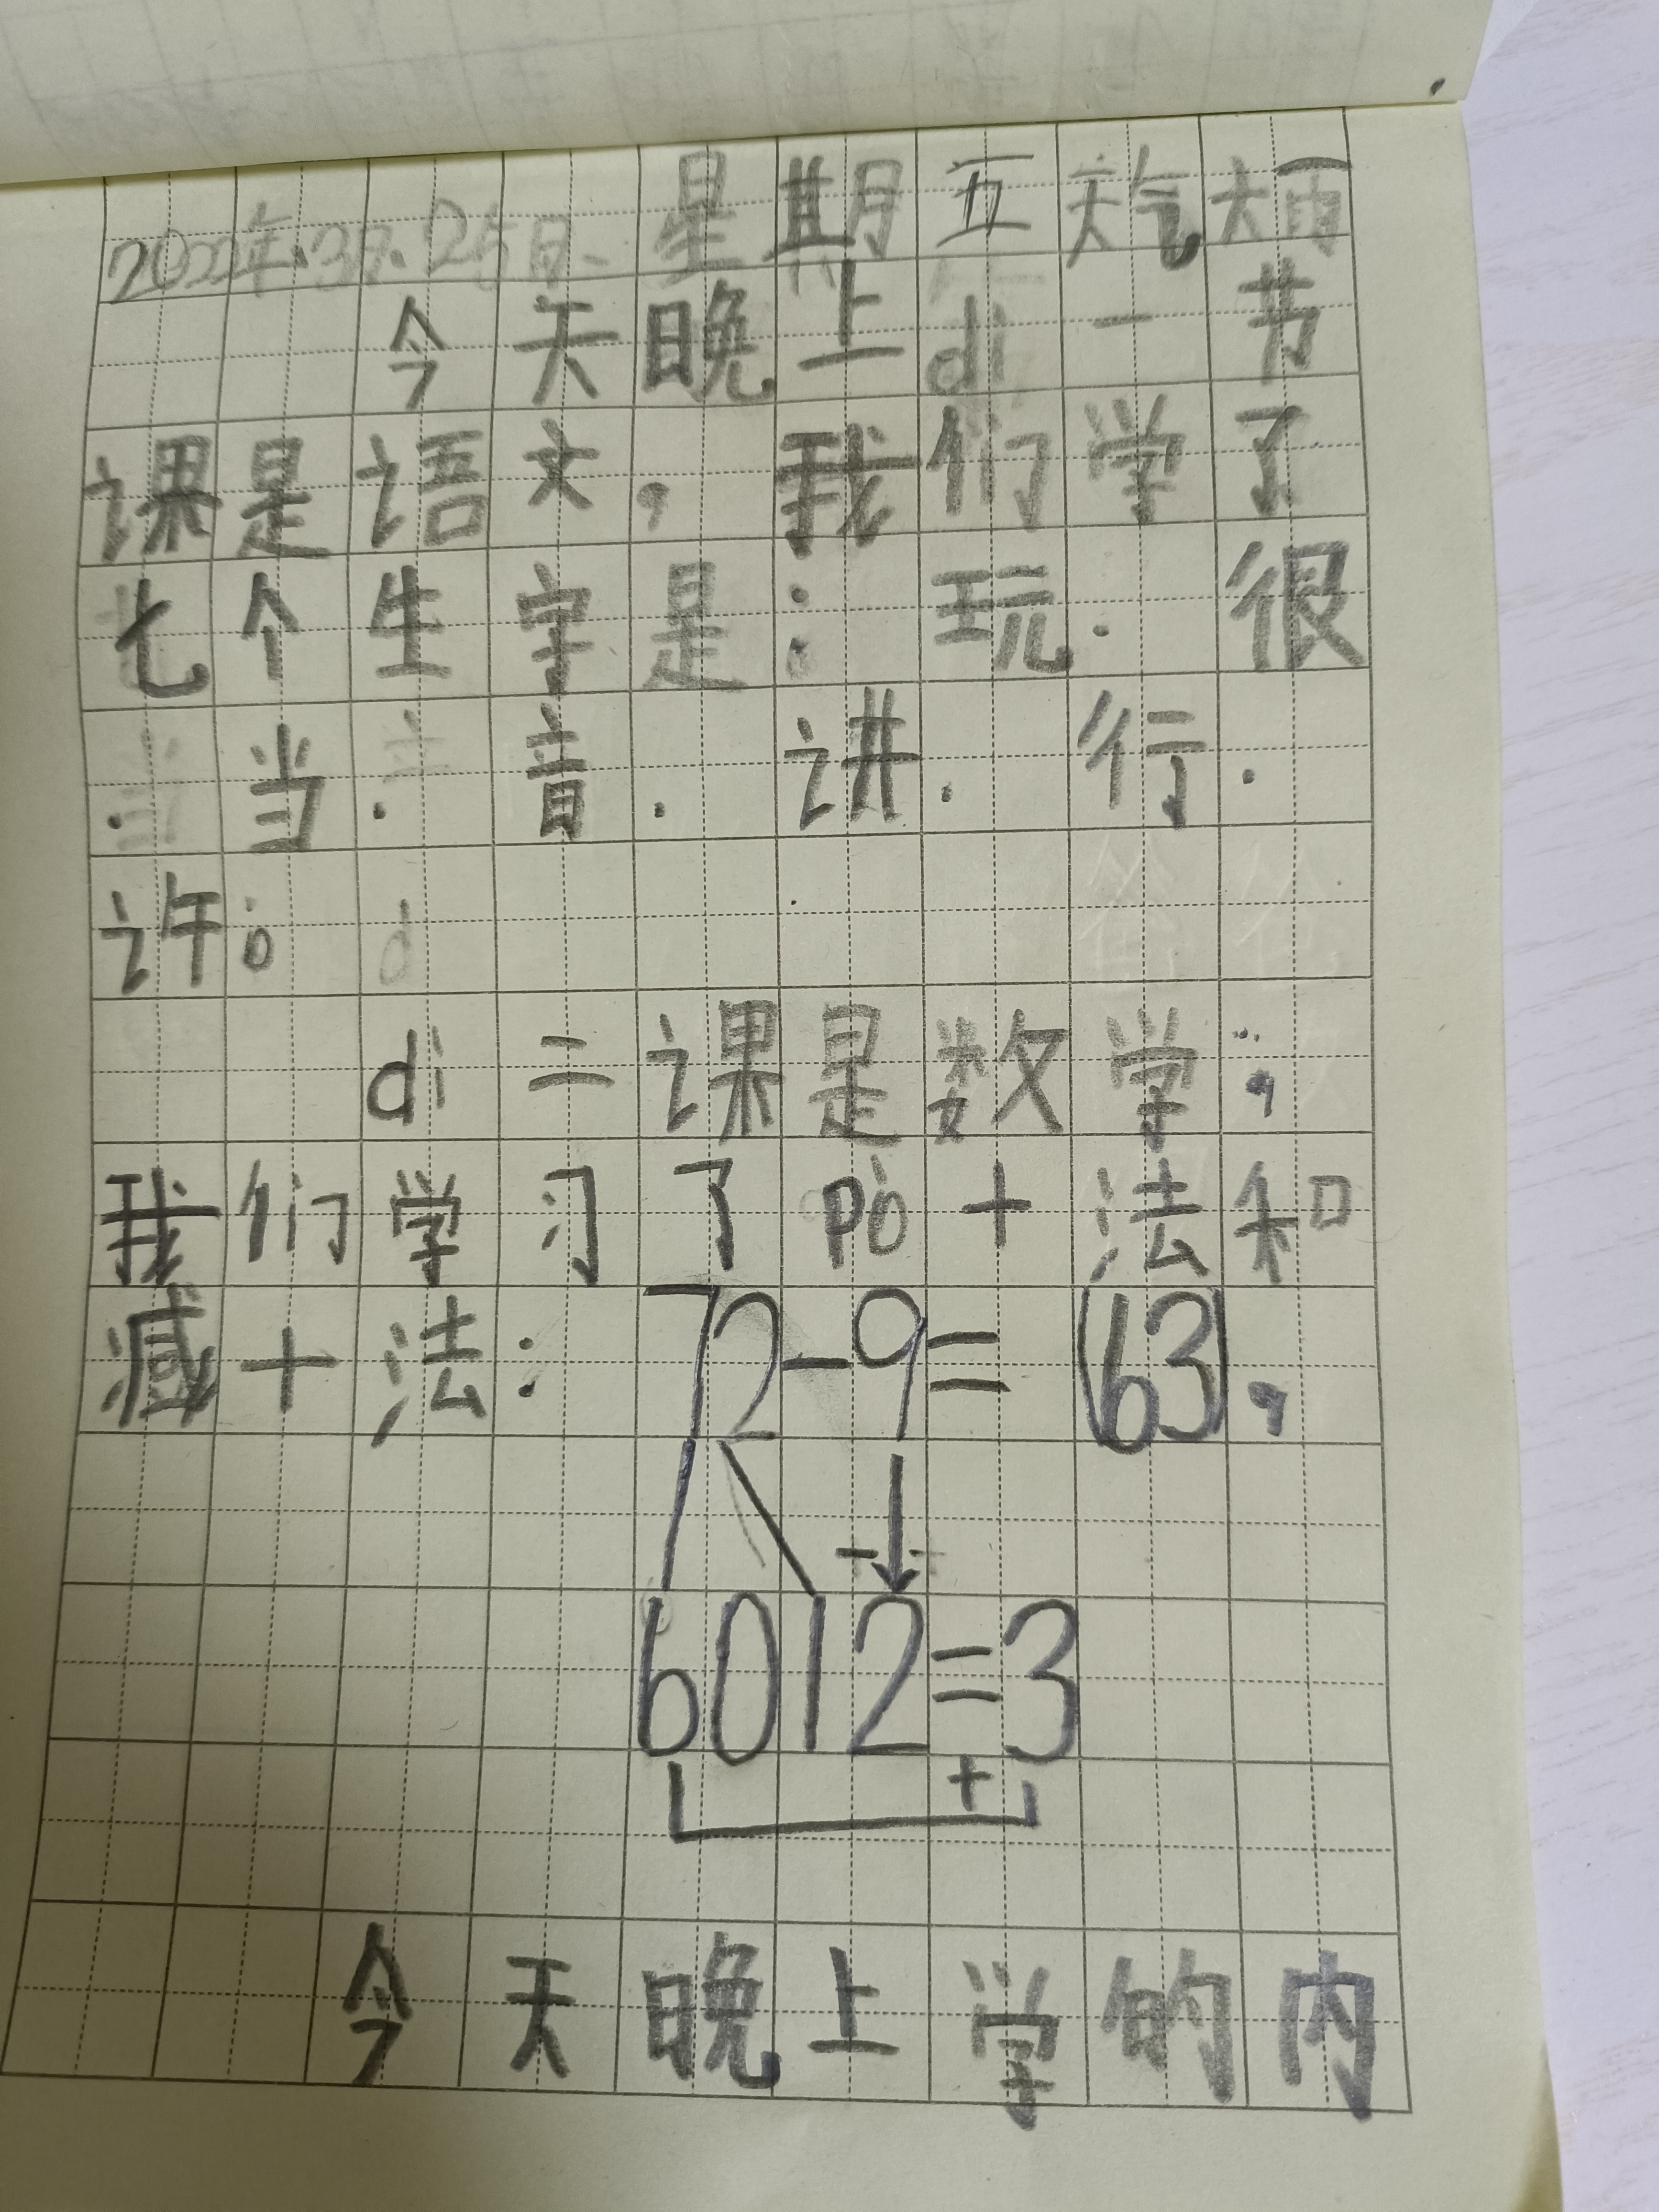 2022年.3月.25日. 星期五天气大雨
今天晚上di一节
课是语文，我们学了
七个生字是：玩．很
．当．音．讲．行．
许。
di二课是数学；
我们学习了pò十法和
减十法：72-9=(63)，
-
6012=3
+
今天晚上学的内